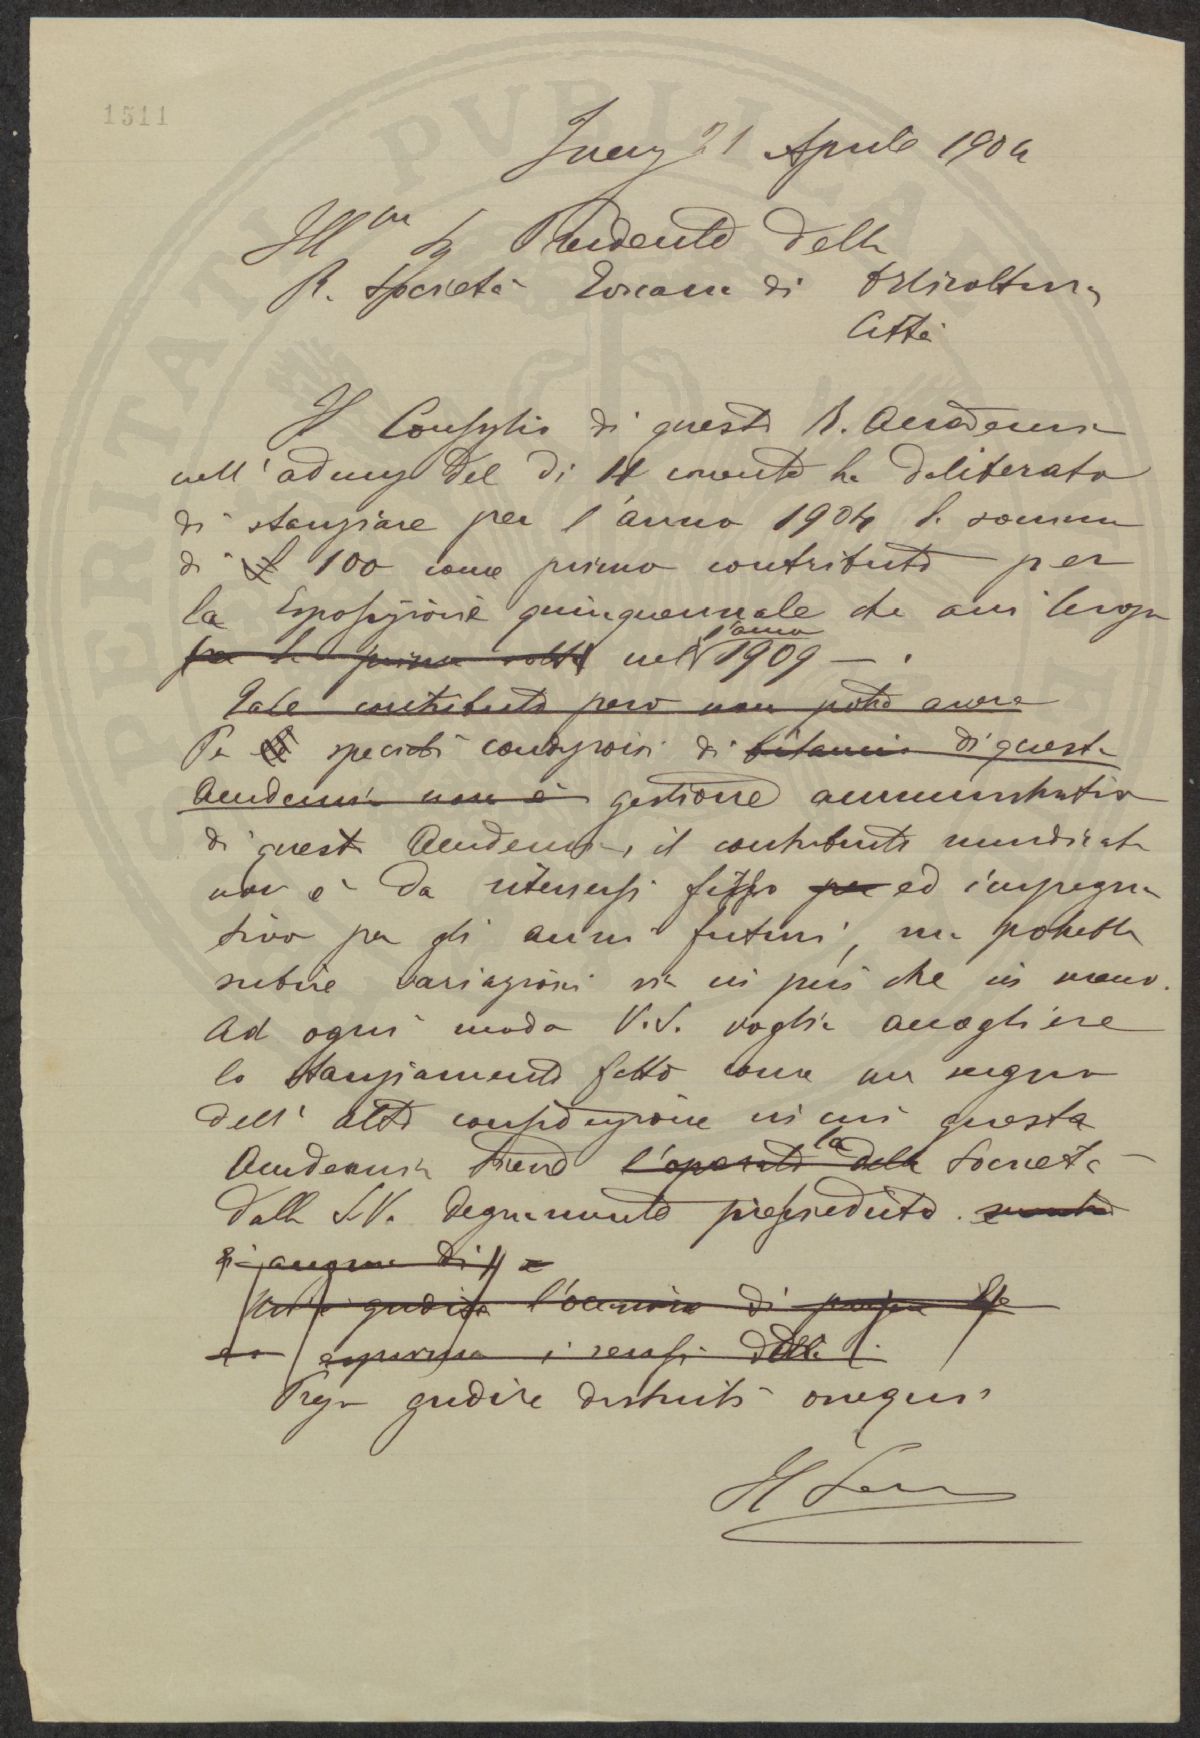 1511
21 Aprile 1904
Ill.mo Sig Presidente della
R. Società Toscana di Orticoltura
Città
Il Consiglio di questa R. Accademia
nell' adunza del dì 11 corrente ha deliberato
di stanziare per l'anno 1904 la somma
di £ 100 come primo contributo per
la Esposizione quinquennale che avrà luogo
per la prima volta nel l'anno 1909 — .
Tale contributo però non potrà avere
Pe speciali condizioni di bilancio di questa
Accademia non è gestione amministrativa
di questa Accademia, il contributo
non è da ritenersi fisso per ed impegna
tivo per gli anni futuri, ma potrebbe
subire variazioni sia in più che in meno.
Ad ogni modo V.S. voglia accogliere
lo stanziamento fatto come un segno
dell' alta considerazione in cui questa
Accademia tiene l'operato della la Società
dalla S.V. degnamente presieduta.
gradisca l'occasione di
esprimere i sensi della
Prego gradire distinti ossequi
Il